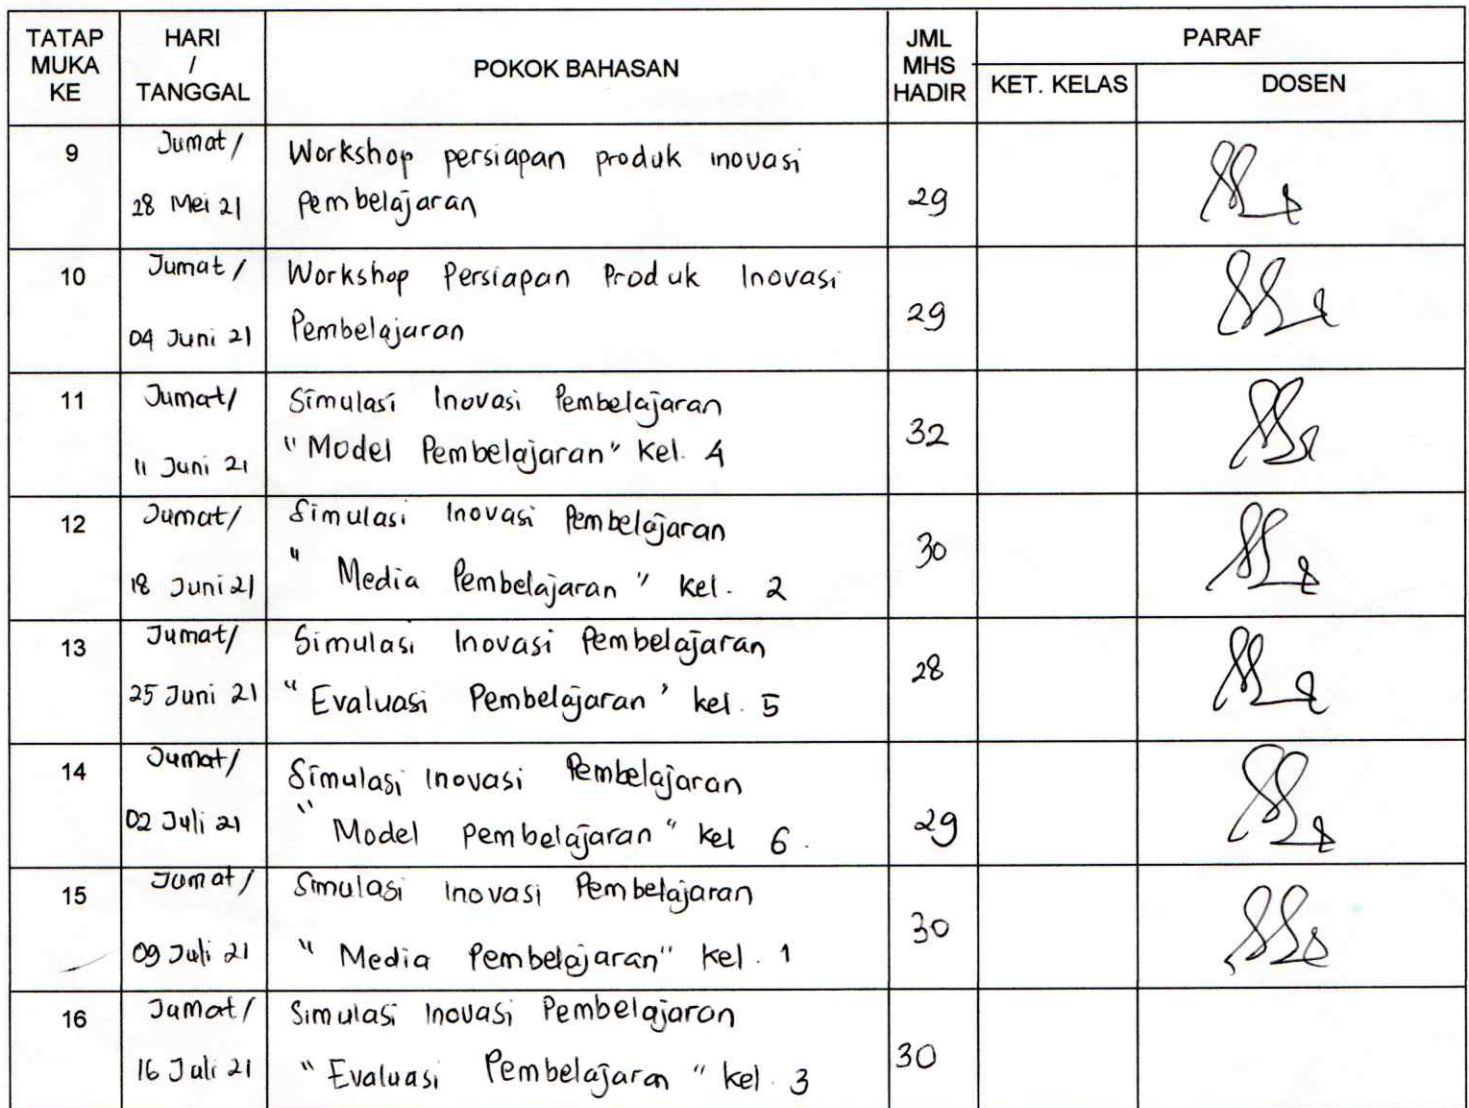 TATAP MUKA KE | HARI / TANGGAL | POKOK BAHASAN | JML MHS HADIR | PARAF
KET. KELAS | DOSEN
9 | Jumat/ 28 Mei 21 | Workshop persiapan produk inovasi
Pembelajaran | 29
10 | Jumat/ 04 Juni 21 | Workshop Persiapan Produk Inovasi
Pembelajaran | 29
11 | Jumat/ 11 Juni 21 | Simulasi Inovasi Pembelajaran
"Model Pembelajaran" Kel. 4 | 32
12 | Jumat/ 18 Juni 21 | Simulasi Inovasi Pembelajaran
"Media Pembelajaran" kel. 2 | 30
13 | Jumat/ 25 Juni 21 | Simulasi Inovasi Pembelajaran
"Evaluasi Pembelajaran' kel. 5 | 28
14 | Jumat/ 02 Juli 21 | Simulasi inovasi Pembelajaran
"Model pembelajaran" kel 6. | 29
15 | Jumat/ 09 Juli 21 | Simulasi inovasi Pembelajaran
"Media Pembelajaran" kel. 1 | 30
16 | Jumat/ 16 Juli 21 | Simulasi inovasi Pembelajaran
"Evaluasi Pembelajaran" kel. 3 | 30